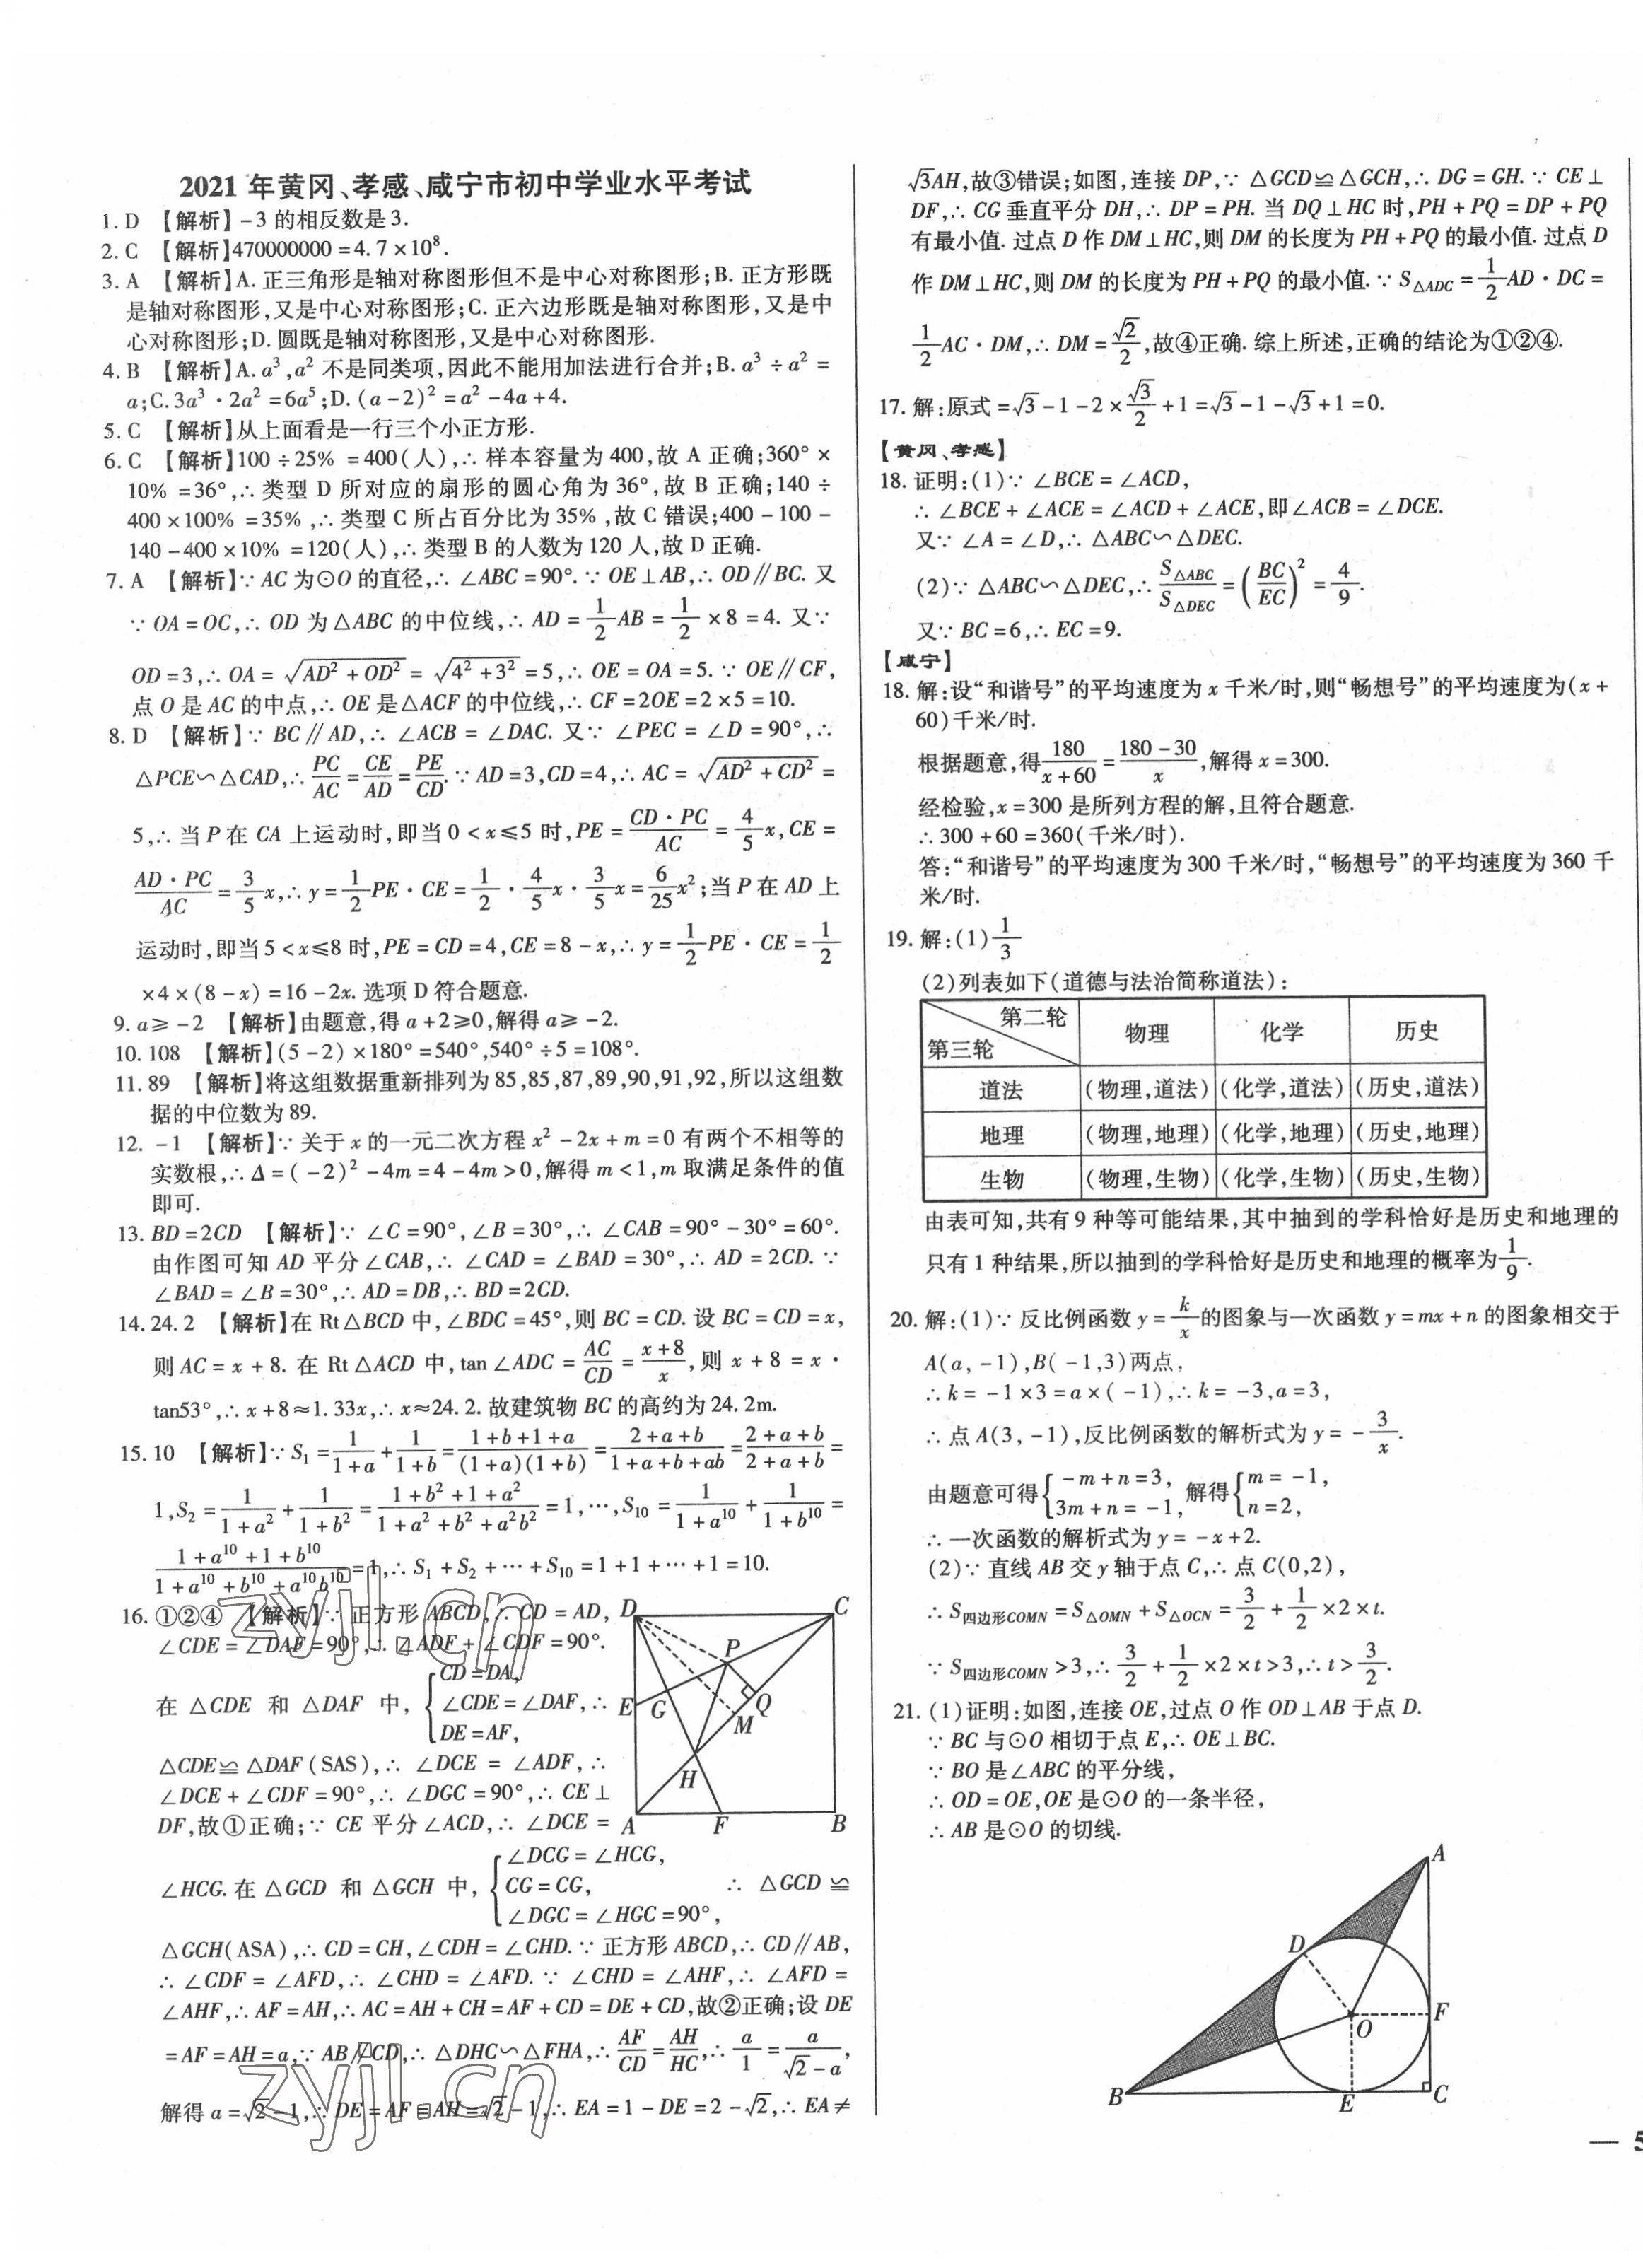 2021 年黄冈、孝感、咸宁市初中学业水平考试
1. D 【解析】-3 的相反数是 3.
2. C 【解析】470000000 = 4.7 × 10⁸.
3. A 【解析】A. 正三角形是轴对称图形但不是中心对称图形;B. 正方形既
是轴对称图形,又是中心对称图形;C. 正六边形既是轴对称图形,又是中
心对称图形;D. 圆既是轴对称图形,又是中心对称图形.
4. B 【解析】A. a³, a² 不是同类项,因此不能用加法进行合并;B. a³ ÷ a² =
a;C. 3a³ · 2a² = 6a⁵;D. (a - 2)² = a² - 4a + 4.
5. C 【解析】从上面看是一行三个小正方形.
6. C 【解析】100 ÷ 25% = 400(人),∴ 样本容量为 400,故 A 正确;360° ×
10% = 36°,∴ 类型 D 所对应的扇形的圆心角为 36°,故 B 正确;140 ÷
400 × 100% = 35%,∴ 类型 C 所占百分比为 35%,故 C 错误;400 - 100 -
140 - 400 × 10% = 120(人),∴ 类型 B 的人数为 120 人,故 D 正确.
7. A 【解析】∵ AC 为⊙O 的直径,∴ ∠ABC = 90°. ∵ OE⊥AB,∴ OD∥BC. 又
∵ OA = OC,∴ OD 为△ABC 的中位线,∴ AD = 1/2 AB = 1/2 × 8 = 4. 又∵
OD = 3,∴ OA = √(AD² + OD²) = √(4² + 3²) = 5,∴ OE = OA = 5. ∵ OE∥CF,
点 O 是 AC 的中点,∴ OE 是△ACF 的中位线,∴ CF = 2OE = 2 × 5 = 10.
8. D 【解析】∵ BC∥AD,∴ ∠ACB = ∠DAC. 又∵ ∠PEC = ∠D = 90°,∴
△PCE∽△CAD,∴ PC/AC = CE/AD = PE/CD. ∵ AD = 3,CD = 4,∴ AC = √(AD² + CD²) =
5,∴ 当 P 在 CA 上运动时,即当 0 < x ≤ 5 时,PE = (CD·PC)/AC = 4/5 x,CE =
(AD·PC)/AC = 3/5 x,∴ y = 1/2 PE·CE = 1/2 · 4/5 x · 3/5 x = 6/25 x²;当 P 在 AD 上
运动时,即当 5 < x ≤ 8 时,PE = CD = 4,CE = 8 - x,∴ y = 1/2 PE·CE = 1/2
× 4 × (8 - x) = 16 - 2x. 选项 D 符合题意.
9. a ≥ -2 【解析】由题意,得 a + 2 ≥ 0,解得 a ≥ -2.
10. 108 【解析】(5 - 2) × 180° = 540°,540° ÷ 5 = 108°.
11. 89 【解析】将这组数据重新排列为 85,85,87,89,90,91,92,所以这组数
据的中位数为 89.
12. -1 【解析】∵ 关于 x 的一元二次方程 x² - 2x + m = 0 有两个不相等的
实数根,∴ Δ = (-2)² - 4m = 4 - 4m > 0,解得 m < 1,m 取满足条件的值
即可.
13. BD = 2CD 【解析】∵ ∠C = 90°,∠B = 30°,∴ ∠CAB = 90° - 30° = 60°.
由作图可知 AD 平分∠CAB,∴ ∠CAD = ∠BAD = 30°,∴ AD = 2CD. ∵
∠BAD = ∠B = 30°,∴ AD = DB,∴ BD = 2CD.
14. 24.2 【解析】在 Rt△BCD 中,∠BDC = 45°,则 BC = CD. 设 BC = CD = x,
则 AC = x + 8. 在 Rt△ACD 中,tan∠ADC = AC/CD = (x+8)/x,则 x + 8 = x ·
tan53°,∴ x + 8 ≈ 1.33x,∴ x ≈ 24.2. 故建筑物 BC 的高约为 24.2m.
15. 10 【解析】∵ S₁ = 1/(1+a) + 1/(1+b) = (1+b+1+a)/((1+a)(1+b)) = (2+a+b)/(1+a+b+ab) = (2+a+b)/(2+a+b) =
1,S₂ = 1/(1+a²) + 1/(1+b²) = (1+b²+1+a²)/(1+a²+b²+a²b²) = 1,…,S₁₀ = 1/(1+a¹⁰) + 1/(1+b¹⁰) =
(1+a¹⁰+1+b¹⁰)/(1+a¹⁰+b¹⁰+a¹⁰b¹⁰) = 1,∴ S₁ + S₂ + … + S₁₀ = 1 + 1 + … + 1 = 10.
16. ①②④ 【解析】∵ 正方形 ABCD,∴ CD = AD,
∠CDE = ∠DAF = 90°,∴ ∠ADF + ∠CDF = 90°.
在 △CDE 和 △DAF 中,{CD = DA, ∠CDE = ∠DAF, DE = AF, ∴
△CDE≌△DAF(SAS),∴ ∠DCE = ∠ADF,∴
∠DCE + ∠CDF = 90°,∴ ∠DGC = 90°,∴ CE⊥
DF,故①正确;∵ CE 平分∠ACD,∴ ∠DCE =
∠HCG. 在 △GCD 和 △GCH 中,{∠DCG = ∠HCG, CG = CG, ∠DGC = ∠HGC = 90°, ∴ △GCD≌
△GCH(ASA),∴ CD = CH,∠CDH = ∠CHD. ∵ 正方形 ABCD,∴ CD∥AB,
∴ ∠CDF = ∠AFD,∴ ∠CHD = ∠AFD. ∵ ∠CHD = ∠AHF,∴ ∠AFD =
∠AHF,∴ AF = AH,∴ AC = AH + CH = AF + CD = DE + CD,故②正确;设 DE
= AF = AH = a,∵ AB∥CD,∴ △DHC∽△FHA,∴ AF/CD = AH/HC,∴ a/1 = a/(√2 - a),
解得 a = √2 - 1,∴ DE = AF = AH = √2 - 1,∴ EA = 1 - DE = 2 - √2,∴ EA ≠
D C P E G Q M H A F B
√3AH,故③错误;如图,连接 DP,∵ △GCD≌△GCH,∴ DG = GH. ∵ CE⊥
DF,∴ CG 垂直平分 DH,∴ DP = PH. 当 DQ⊥HC 时,PH + PQ = DP + PQ
有最小值. 过点 D 作 DM⊥HC,则 DM 的长度为 PH + PQ 的最小值. 过点 D
作 DM⊥HC,则 DM 的长度为 PH + PQ 的最小值. ∵ S△ADC = 1/2 AD·DC =
1/2 AC·DM,∴ DM = √2/2,故④正确. 综上所述,正确的结论为①②④.
17. 解:原式 = √3 - 1 - 2 × √3/2 + 1 = √3 - 1 - √3 + 1 = 0.
【黄冈、孝感】
18. 证明:(1)∵ ∠BCE = ∠ACD,
∴ ∠BCE + ∠ACE = ∠ACD + ∠ACE,即∠ACB = ∠DCE.
又∵ ∠A = ∠D,∴ △ABC∽△DEC.
(2)∵ △ABC∽△DEC,∴ S△ABC/S△DEC = (BC/EC)² = 4/9.
又∵ BC = 6,∴ EC = 9.
【咸宁】
18. 解:设“和谐号”的平均速度为 x 千米/时,则“畅想号”的平均速度为(x +
60)千米/时.
根据题意,得 180/(x+60) = (180-30)/x,解得 x = 300.
经检验,x = 300 是所列方程的解,且符合题意.
∴ 300 + 60 = 360(千米/时).
答:“和谐号”的平均速度为 300 千米/时,“畅想号”的平均速度为 360 千
米/时.
19. 解:(1) 1/3
(2)列表如下(道德与法治简称道法):
第二轮 第三轮 物理 化学 历史
道法 (物理,道法) (化学,道法) (历史,道法)
地理 (物理,地理) (化学,地理) (历史,地理)
生物 (物理,生物) (化学,生物) (历史,生物)
由表可知,共有 9 种等可能结果,其中抽到的学科恰好是历史和地理的
只有 1 种结果,所以抽到的学科恰好是历史和地理的概率为 1/9.
20. 解:(1)∵ 反比例函数 y = k/x 的图象与一次函数 y = mx + n 的图象相交于
A(a, -1),B(-1,3)两点,
∴ k = -1 × 3 = a × (-1),∴ k = -3,a = 3,
∴ 点 A(3, -1),反比例函数的解析式为 y = -3/x.
由题意可得{-m + n = 3, 3m + n = -1, 解得{m = -1, n = 2,
∴ 一次函数的解析式为 y = -x + 2.
(2)∵ 直线 AB 交 y 轴于点 C,∴ 点 C(0,2),
∴ S四边形COMN = S△OMN + S△OCN = 3/2 + 1/2 × 2 × t.
∵ S四边形COMN > 3,∴ 3/2 + 1/2 × 2 × t > 3,∴ t > 3/2.
21. (1)证明:如图,连接 OE,过点 O 作 OD⊥AB 于点 D.
∵ BC 与⊙O 相切于点 E,∴ OE⊥BC.
∵ BO 是∠ABC 的平分线,
∴ OD = OE,OE 是⊙O 的一条半径,
∴ AB 是⊙O 的切线.
A D O F B E C
— 5
zyjl.cn
zyjl.cn